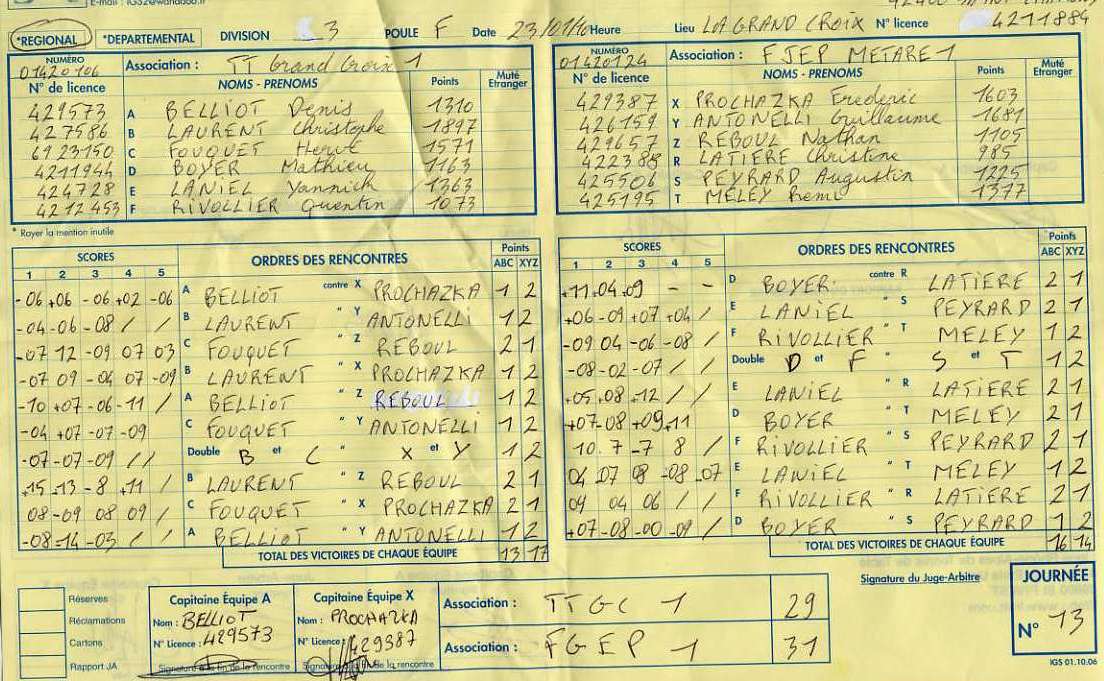 E-mail : IG52@wanadoo.fr
*REGIONAL *DEPARTEMENTAL DIVISION 3 POULE F Date 23/01/10 Heure Lieu LA GRAND CROIX N° licence 4211884
NUMÉRO
01420106
Association : TT Grand Croix 1
N° de licence NOMS - PRENOMS Points Muté Etranger
429573 A BELLIOT Denis 1310
427586 B LAURENT Christophe 1897
6923150 C FOUQUET Hervé 1571
4211944 D BOYER Mathieu 1163
424728 E LANIEL Yannick 1363
4212453 F RIVOLLIER Quentin 1073
NUMÉRO
01420124
Association : FJEP METARE 1
N° de licence NOMS - PRENOMS Points Muté Etranger
429387 X PROCHAZKA Frederic 1603
426159 Y ANTONELLI Guillaume 1681
429657 Z REBOUL Nathan 1105
422388 R LATIERE Christine 985
425506 S PEYRARD Augustin 1225
425195 T MELEY Remi 1377
* Rayer la mention inutile
SCORES ORDRES DES RENCONTRES Points
1 2 3 4 5 ABC XYZ
-06 +06 -06 +02 -06 A BELLIOT contre X PROCHAZKA 1 2
-04 -06 -08 / / B LAURENT " Y ANTONELLI 1 2
-07 12 -09 07 03 C FOUQUET " Z REBOUL 2 1
-07 09 -04 07 -09 B LAURENT " X PROCHAZKA 1 2
-10 +07 -06 -11 / A BELLIOT " Z REBOUL 1 2
-04 +07 -07 -09 C FOUQUET " Y ANTONELLI 1 2
-07 -07 -09 / / Double B et C X et Y 1 2
+15 -13 -8 +11 / B LAURENT " Z REBOUL 2 1
08 -09 08 09 / C FOUQUET " X PROCHAZKA 2 1
-08 -14 -03 / / A BELLIOT " Y ANTONELLI 1 2
TOTAL DES VICTOIRES DE CHAQUE ÉQUIPE 13 17
SCORES ORDRES DES RENCONTRES Points
1 2 3 4 5 ABC XYZ
+11 +04 +09 - - D BOYER contre R LATIERE 2 1
+06 -09 +07 +04 / E LANIEL " S PEYRARD 2 1
-09 04 -06 -08 / F RIVOLLIER " T MELEY 1 2
-08 -02 -07 / / Double D et F S et T 1 2
+05 +08 +12 / / E LANIEL " R LATIERE 2 1
+07 -08 +09 +11 D BOYER " T MELEY 2 1
10 7 -7 8 / F RIVOLLIER " S PEYRARD 2 1
04 -07 08 -08 -07 E LANIEL " T MELEY 1 2
09 04 06 / / F RIVOLLIER " R LATIERE 2 1
+07 -08 -00 -09 / D BOYER " S PEYRARD 1 2
TOTAL DES VICTOIRES DE CHAQUE ÉQUIPE 16 14
Réserves
Réclamations
Cartons
Rapport JA
Capitaine Équipe A
Nom : BELLIOT
N° Licence : 429573
Signature à la fin de la rencontre
Capitaine Équipe X
Nom : PROCHAZKA
N° Licence : 429387
Signature à la fin de la rencontre
Association : TTGC 1 29
Association : FGEP 1 31
Signature du Juge-Arbitre
JOURNÉE
N° 13
IGS 01.10.06